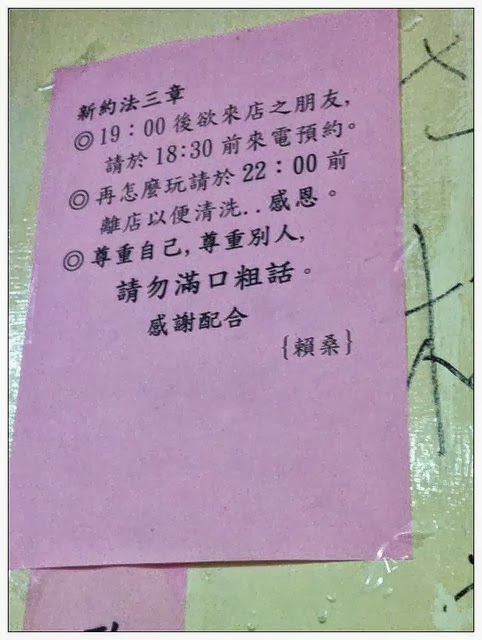 新約法三章
◎19：00後欲來店之朋友,
請於18:30前來電預約。
◎再怎麼玩請於22：00前
離店以便清洗..感恩。
◎尊重自己,尊重別人,
請勿滿口粗話。
感謝配合
{賴桑}